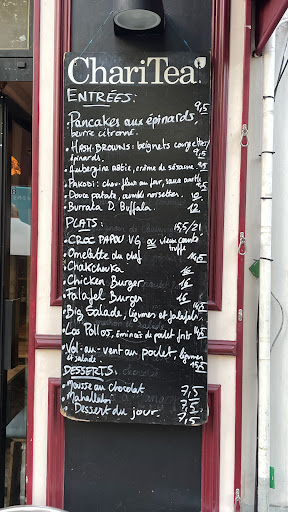 ChariTea
ENTRÉES:
Pancakes aux épinards, 9,5
beurre citronné.
HASH-BROWNS: beignets courgettes/
épinards. 9,5
Aubergine rôtie, crème de sésame 9,5
Pakodi: chou-fleur au four, sauce 9,5
Douce patate, crumble noisettes. 10
Burrata D. Buffala 12
PLATS: 15,5/21
CROC PAPOU VG ou vieux comté
truffe
Omelette du chef 14,5
Chakchouka
Chicken Burger
Falafel Burger
Big Salade, légumes et falafels
Los Pollos, émincés de poulet frits
Vol-au-vent au poulet, légumes
et salade. 15,5
DESSERTS:
Mousse au chocolat 7,5
Mahallabi 7,5
Dessert du jour. 7,5